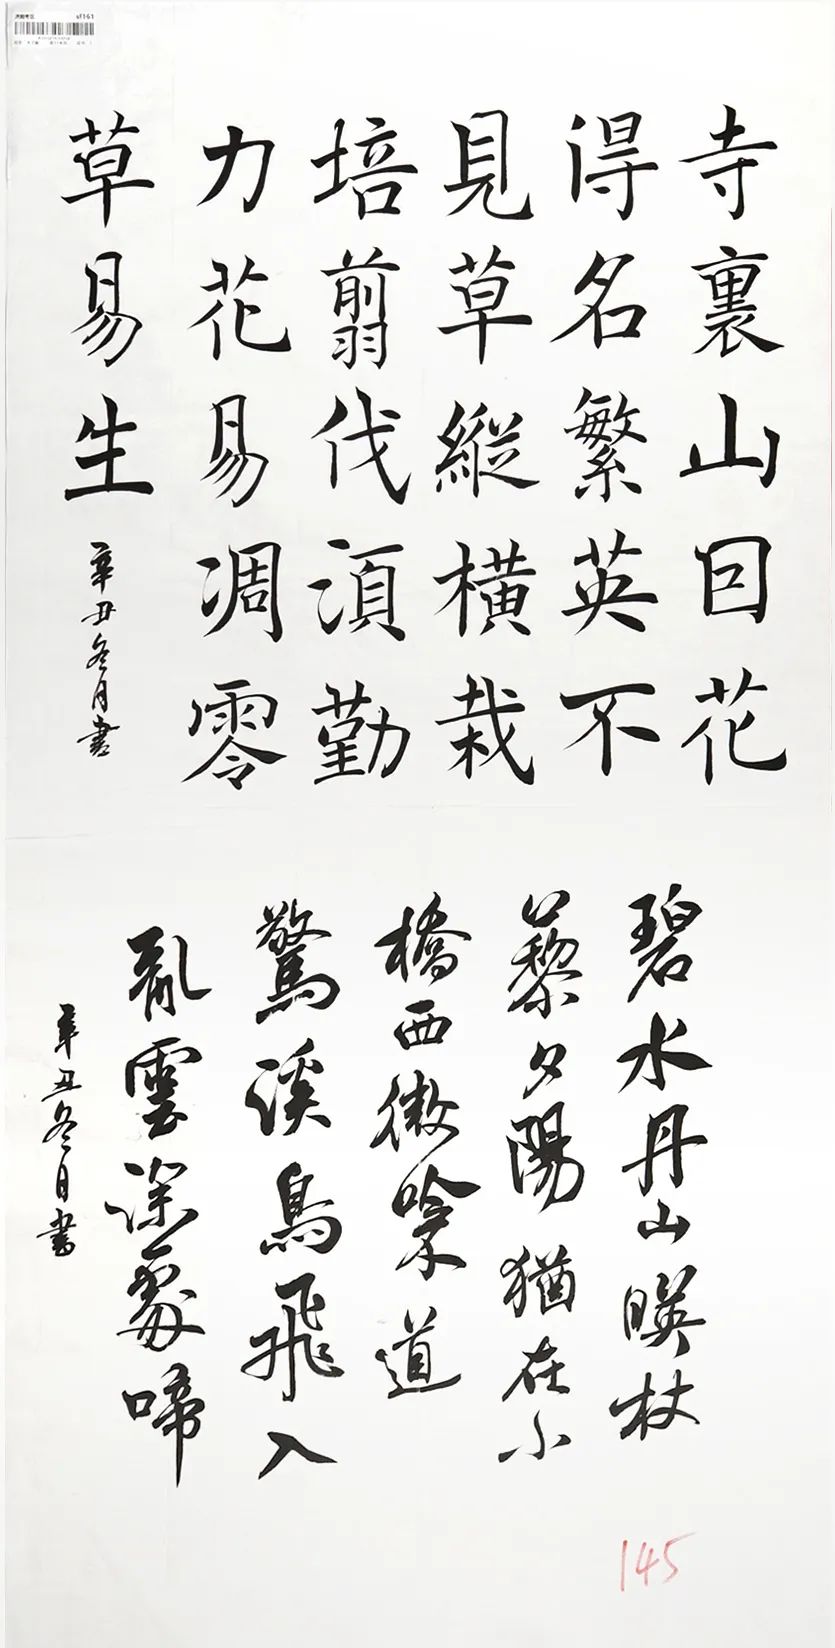 济南考区 sf161
寺裏山因花
得名繁英不
見草縱橫栽
培翦伐須勤
力花易凋零
草易生
辛丑冬月書
碧水丹山暎杖
藜夕陽猶在小
橋西微吟不道
驚溪鳥飛入
亂雲深處啼
辛丑冬月書
145